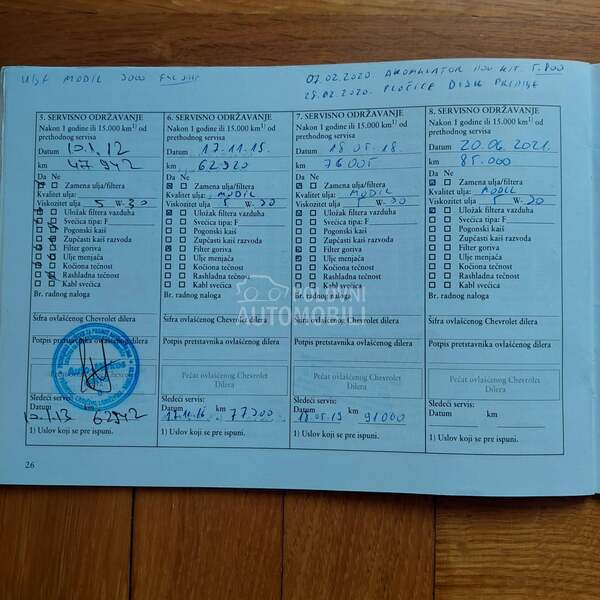 07.02.2020. AKOMULATOR
28.02.2020. PLOČICE DISK PREDNJE
5. SERVISNO ODRŽAVANJE
Nakon 1 godine ili 15.000 km1) od
prethodnog servisa
Datum 10.1.12
km 47.942
Da Ne
Zamena ulja/filtera
Kvalitet ulja:
Viskozitet ulja 5 W-30
Uložak filtera vazduha
Svećica tipa: F
Pogonski kaiš
Zupčasti kaiš razvoda
Filter goriva
Ulje menjača
Kočiona tečnost
Rashladna tečnost
Kabl svećica
Br. radnog naloga
Šifra ovlašćenog Chevrolet dilera
Potpis pretstavnika ovlašćenog dilera
Sledeći servis:
Datum km
10.1.13 62942
1) Uslov koji se pre ispuni.
6. SERVISNO ODRŽAVANJE
Nakon 1 godine ili 15.000 km1) od
prethodnog servisa
Datum 17.11.15.
km 62320
Da Ne
Zamena ulja/filtera
Kvalitet ulja: MOBIL
Viskozitet ulja 5 W-30
Uložak filtera vazduha
Svećica tipa: F
Pogonski kaiš
Zupčasti kaiš razvoda
Filter goriva
Ulje menjača
Kočiona tečnost
Rashladna tečnost
Kabl svećica
Br. radnog naloga
Šifra ovlašćenog Chevrolet dilera
Potpis pretstavnika ovlašćenog dilera
Pečat ovlašćenog Chevrolet
Dilera
Sledeći servis:
Datum km
17.11.16 77300
1) Uslov koji se pre ispuni.
7. SERVISNO ODRŽAVANJE
Nakon 1 godine ili 15.000 km1) od
prethodnog servisa
Datum 18.05.18
km 76.005
Da Ne
Zamena ulja/filtera
Kvalitet ulja: MOBIL
Viskozitet ulja 5 W-30
Uložak filtera vazduha
Svećica tipa: F
Pogonski kaiš
Zupčasti kaiš razvoda
Filter goriva
Ulje menjača
Kočiona tečnost
Rashladna tečnost
Kabl svećica
Br. radnog naloga
Šifra ovlašćenog Chevrolet dilera
Potpis pretstavnika ovlašćenog dilera
Pečat ovlašćenog Chevrolet
Dilera
Sledeći servis:
Datum km
18.05.19 91000
1) Uslov koji se pre ispuni.
8. SERVISNO ODRŽAVANJE
Nakon 1 godine ili 15.000 km1) od
prethodnog servisa
Datum 20.06.2021.
km 85.000
Da Ne
Zamena ulja/filtera
Kvalitet ulja: MOBIL
Viskozitet ulja 5 W-30
Uložak filtera vazduha
Svećica tipa: F
Pogonski kaiš
Zupčasti kaiš razvoda
Filter goriva
Ulje menjača
Kočiona tečnost
Rashladna tečnost
Kabl svećica
Br. radnog naloga
Šifra ovlašćenog Chevrolet dilera
Potpis pretstavnika ovlašćenog dilera
Pečat ovlašćenog Chevrolet
Dilera
Sledeći servis:
Datum km
1) Uslov koji se pre ispuni.
POLOVNI
AUTOMOBILI
26